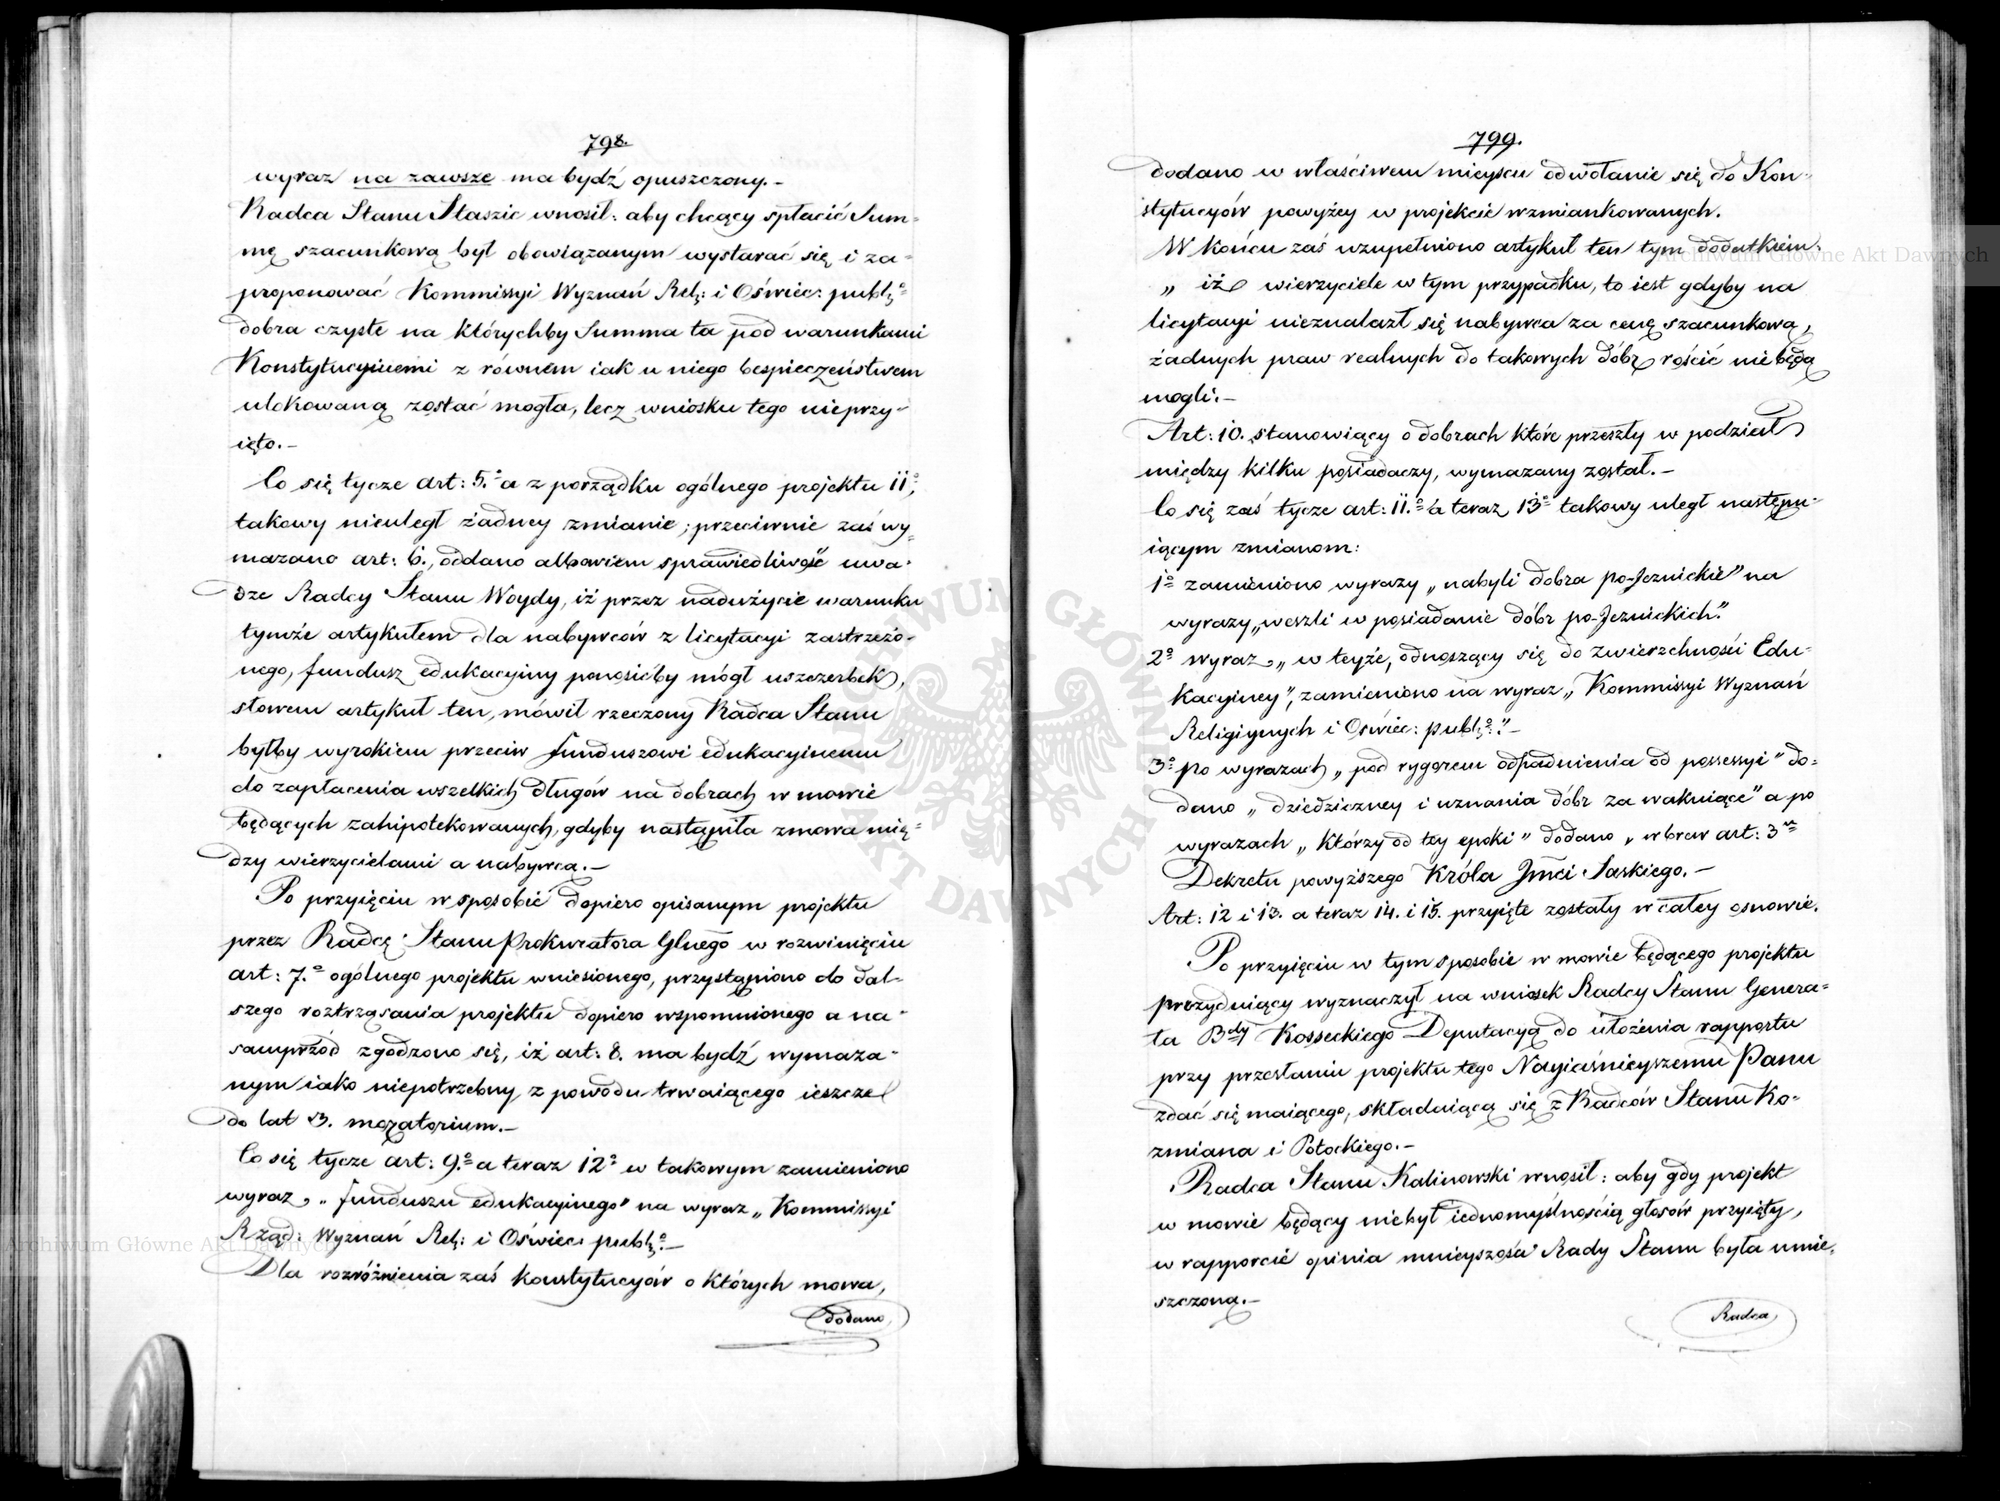 798.
wyraz na zawsze ma bydź opuszczony.-
Radca Stanu Staszic wnosił: aby chcący spłacić Sum-
mę szacunkową był obowiązanym wystarać się i za-
proponować Kommissyi Wyznań Rel: i Oświec: publ:
dobra czyste na którychby Summa ta pod warunkami
Konstytucyinemi z równem iak u niego bespieczeństwem
ulokowaną zostać mogła, lecz wniosku tego nieprzy-
ięto.-
Co się tycze art: 5.º a z porządku ogólnego projektu 11º,
takowy nieuległ żadney zmianie; przeciwnie zaś wy-
mazano art: 6., oddano albowiem sprawiedliwość uwa-
dze Radcy Stanu Woydy, iż przez nadużycie warunku
tymże artykułem dla nabywców z licytacyi zastrzeżo-
nego, fundusz edukacyiny ponosićby mógł uszczerbek,
słowem artykuł ten, mówił rzeczony Radca Stanu
byłby wyrokiem przeciw funduszowi edukacyinemu
do zapłacenia wszelkich długów na dobrach w mowie
będących zahipotekowanych, gdyby nastąpiła zmowa mię-
dzy wierzycielami a nabywcą.-
Po przyięciu w sposobie dopiero opisanym projektu
przez Radcę Stanu Prokuratora Glnego w rozwinięciu
art: 7.º ogólnego projektu wniesionego, przystąpiono do dal-
szego roztrząsania projektu dopiero wspomnionego a na-
samprzód zgodzono się, iż art: 8. ma bydź wymaza-
nym iako niepotrzebny z powodu trwaiącego ieszcze
do lat 3. moratorium.-
Co się tycze art: 9.º a teraz 12º w takowym zamieniono
wyraz „funduszu edukacyinego" na wyraz „Kommissyi
Rząd: Wyznań Rel: i Oświec: publ:-
Dla rozróżnienia zaś konstytucyów o których mowa,
dodano
799.
dodano w właściwem mieyscu odwołanie się do Kon-
stytucyów powyżey w projekcie wzmiankowanych.
W końcu zaś uzupełniono artykuł ten tym dodatkiem.
„ iż wierzyciele w tym przypadku, to iest gdyby na
licytacyi nieznalazł się nabywca za cenę szacunkową,
żadnych praw realnych do takowych dóbr rościć nie będą
mogli.-
Art: 10. stanowiący o dobrach które przeszły w podział
między kilku posiadaczy, wymazany został.-
Co się zaś tycze art: 11.º a teraz 13º takowy uległ następu-
iącym zmianom:
1º zamieniono wyrazy „nabyli dobra po-Jeznickie" na
wyrazy „weszli w posiadanie dóbr po-Jeznickich."
2º wyraz „w teyże, odnoszący się do zwierzchności Edu-
kacyiney", zamieniono na wyraz „Kommissyi Wyznań
Religiynych i Oświec: publ:"-
3º po wyrazach „pod rygorem odpadnienia od possessyi" do-
dano „dziedziczney i uznania dóbr za wakuiące" a po
wyrazach „którzy od tey epoki" dodano „wbrew art: 3
Dekretu powyższego Króla Jmci Saskiego.-
Art: 12 i 13. a teraz 14. i 15. przyięte zostały w całey osnowie.
Po przyięciu w tym sposobie w mowie będącego projektu
prezyduiący wyznaczył na wniosek Radcy Stanu Genera-
ła Bdy Kosseckiego Deputacyą do ułożenia rapportu
przy przesłaniu projektu tego Nayiaśnieyszemu Panu
zdać się maiącego, składaiącą się z Radców Stanu Ko-
zmiana i Potockiego.-
Radca Stanu Kalinowski wnosił: aby gdy projekt
w mowie będący niebył iednomyślnością głosów przyięty,
w rapporcie opinia mnieyszości Rady Stanu była umie-
szczoną.-
Radca
Archiwum Główne Akt Dawnych
Archiwum Główne Akt Dawnych
ARCHIWUM GŁÓWNE AKT DAWNYCH